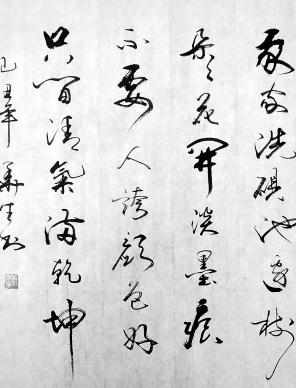 我家洗硯池邊樹
朵々花開淡墨痕
不要人誇顏色好
只留清氣滿乾坤
己丑年 華生書